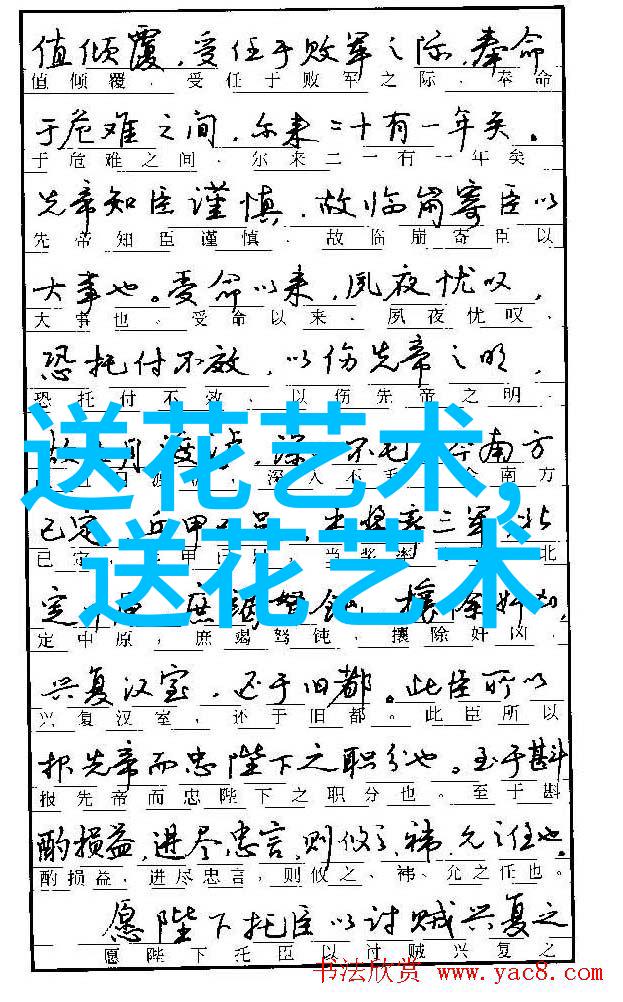 值倾覆，受任于败军之际，奉命
值倾覆，受任于败军之际，奉命
于危难之间，尔来二十有一年矣。
于危难之间，尔来二一有一年矣
先帝知臣谨慎，故临崩寄臣以
先帝知臣谨慎，故临崩寄臣以
大事也。受命以来，夙夜忧叹，
大事也。受命以来，夙夜忧叹，
恐托付不效，以伤先帝之明，
恐托付不效，以伤先帝之明，
故 月渡 ，深 不毛 今南方
深入不毛 今南方
送花艺术,
已定 兵甲 三军 北
已定 北
送花艺术
定中原，庶竭驽钝，攘除奸凶，
定中原，庶竭驽钝，攘除奸凶，
兴复汉室，还于旧都。此臣所以
兴复汉室，还于旧都。此臣所以
报先帝而忠陛下之职分也。至于斟
报先帝而忠陛下之职分也。至于斟
酌损益，进尽忠言，则攸之、祎、允之任也。
酌损益，进尽忠言，则攸之、祎、允之任也。
愿陛下托臣以讨贼兴复之
愿陛下托臣以讨贼兴复之
书法欣赏 www.yac8.com